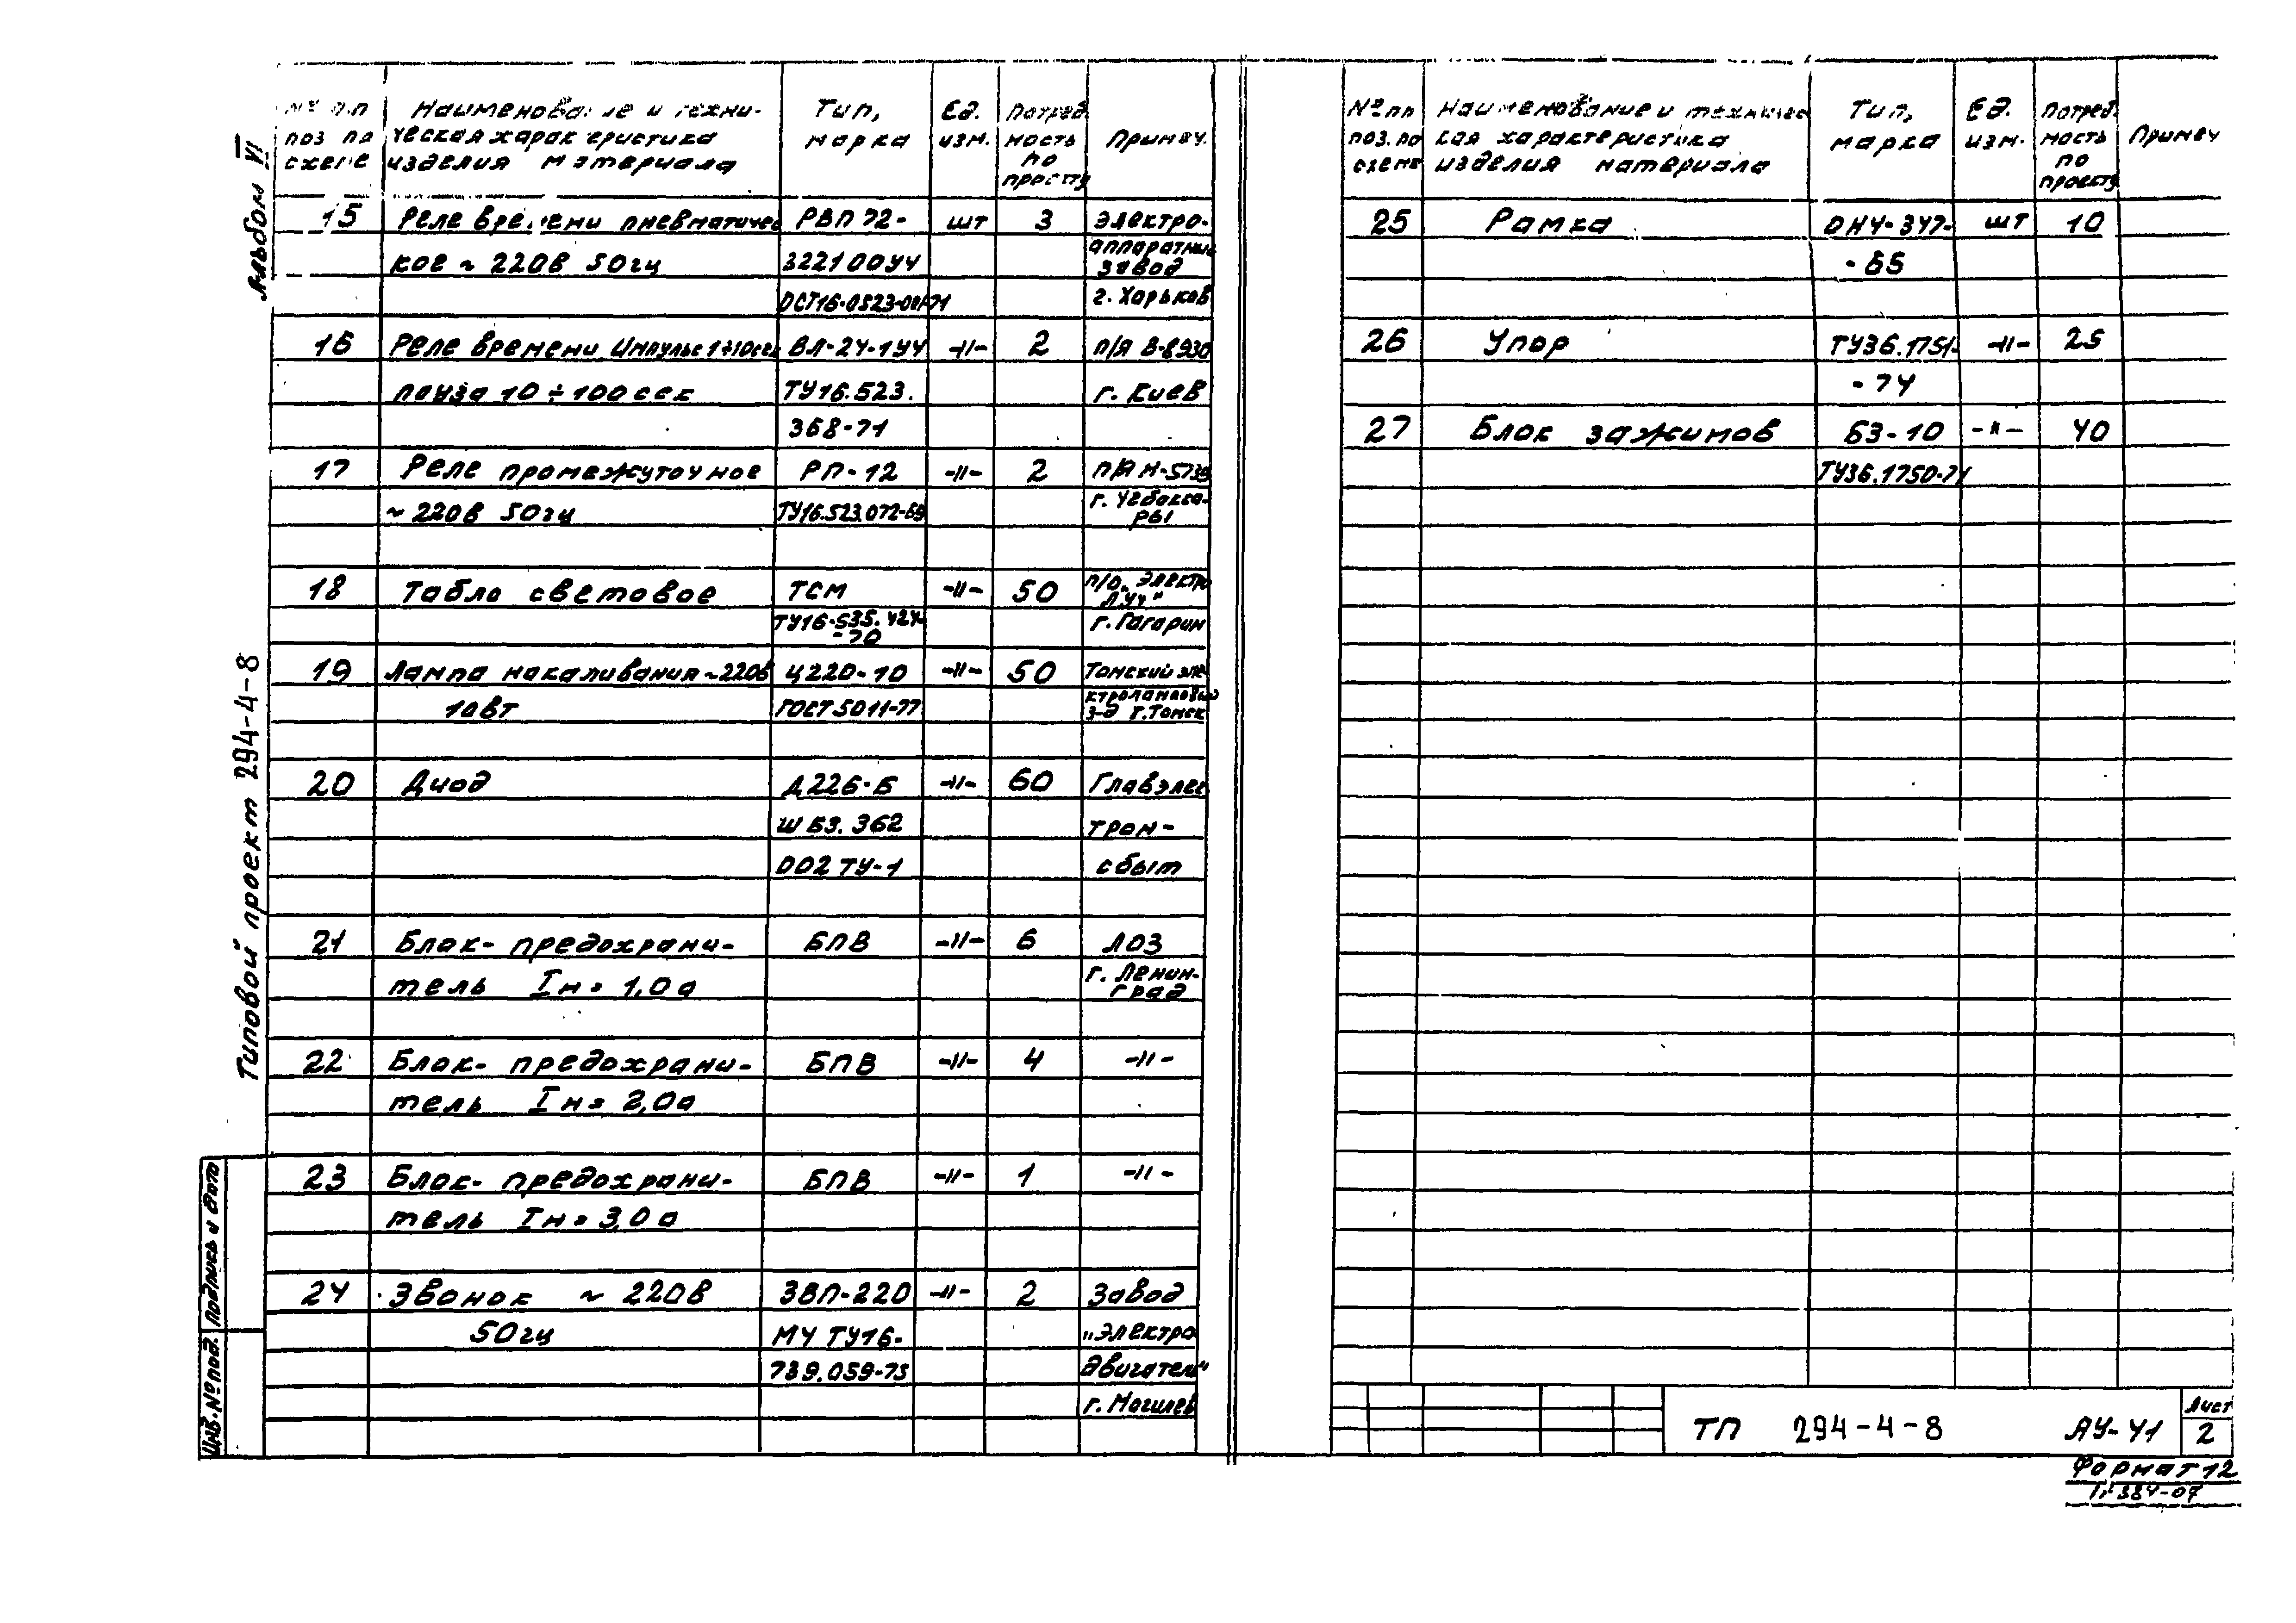 Альбом VI
Типовой проект 294-4-8
Подпись и дата
Инв. № под.
№ п.п поз по схеме | Наименование и техническая характеристика изделия материала | Тип, марка | Ед. изм. | Потребность по проекту | Примеч.
15 Реле времени пневматичес РВП 72- шт 3 Электро-
аппаратный
кое ~ 220в 50гц 322100У4 завод
ОСТ16-0523-001-71 г. Харьков
16 Реле времени Импульс 1÷10сек ВЛ-24-1У4 -//- 2 п/я В-8930
пауза 10÷100 сек ТУ16.523. г. Киев
368-71
17 Реле промежуточное РП-12 -//- 2 п/я М-5739
~ 220в 50гц ТУ16.523.072-69 г. Чебокса-
ры
18 Табло световое ТСМ -//- 50 п/о „Электро
Луч"
ТУ16-535.424- г. Гагарин
-70
19 Лампа накаливания ~220в Ц220-10 -//- 50 Томский эле
ктроламповый
10вт ГОСТ 5011-77 з-д г.Томск
20 Диод Д226-Б -//- 60 Главэлек
ЩБ3.362 трон-
002 ТУ-1 сбыт
21 Блок- предохрани- БПВ -//- 6 ЛОЗ
тель Iн= 1,0а г. Ленин-
град
22 Блок- предохрани- БПВ -//- 4 -//-
тель Iн= 2,0а
23 Блок- предохрани- БПВ -//- 1 -//-
тель Iн= 3,0а
24 Звонок ~ 220в ЗВП-220 -//- 2 Завод
50гц МЧ ТУ16- „Электро
739.059-75 двигатель"
г. Могилев
№ пп поз. по схеме | Наименование и техническая характеристика изделия материала | Тип, марка | Ед. изм. | Потребность по проекту | Примеч
25 Рамка ОН4-347- шт 10
-65
26 Упор ТУ36.1751- -//- 25
-74
27 Блок зажимов БЗ-10 -//- 40
ТУ36.1750-74
ТП 294-4-8 АУ-Ч1 Лист
2
Формат 12